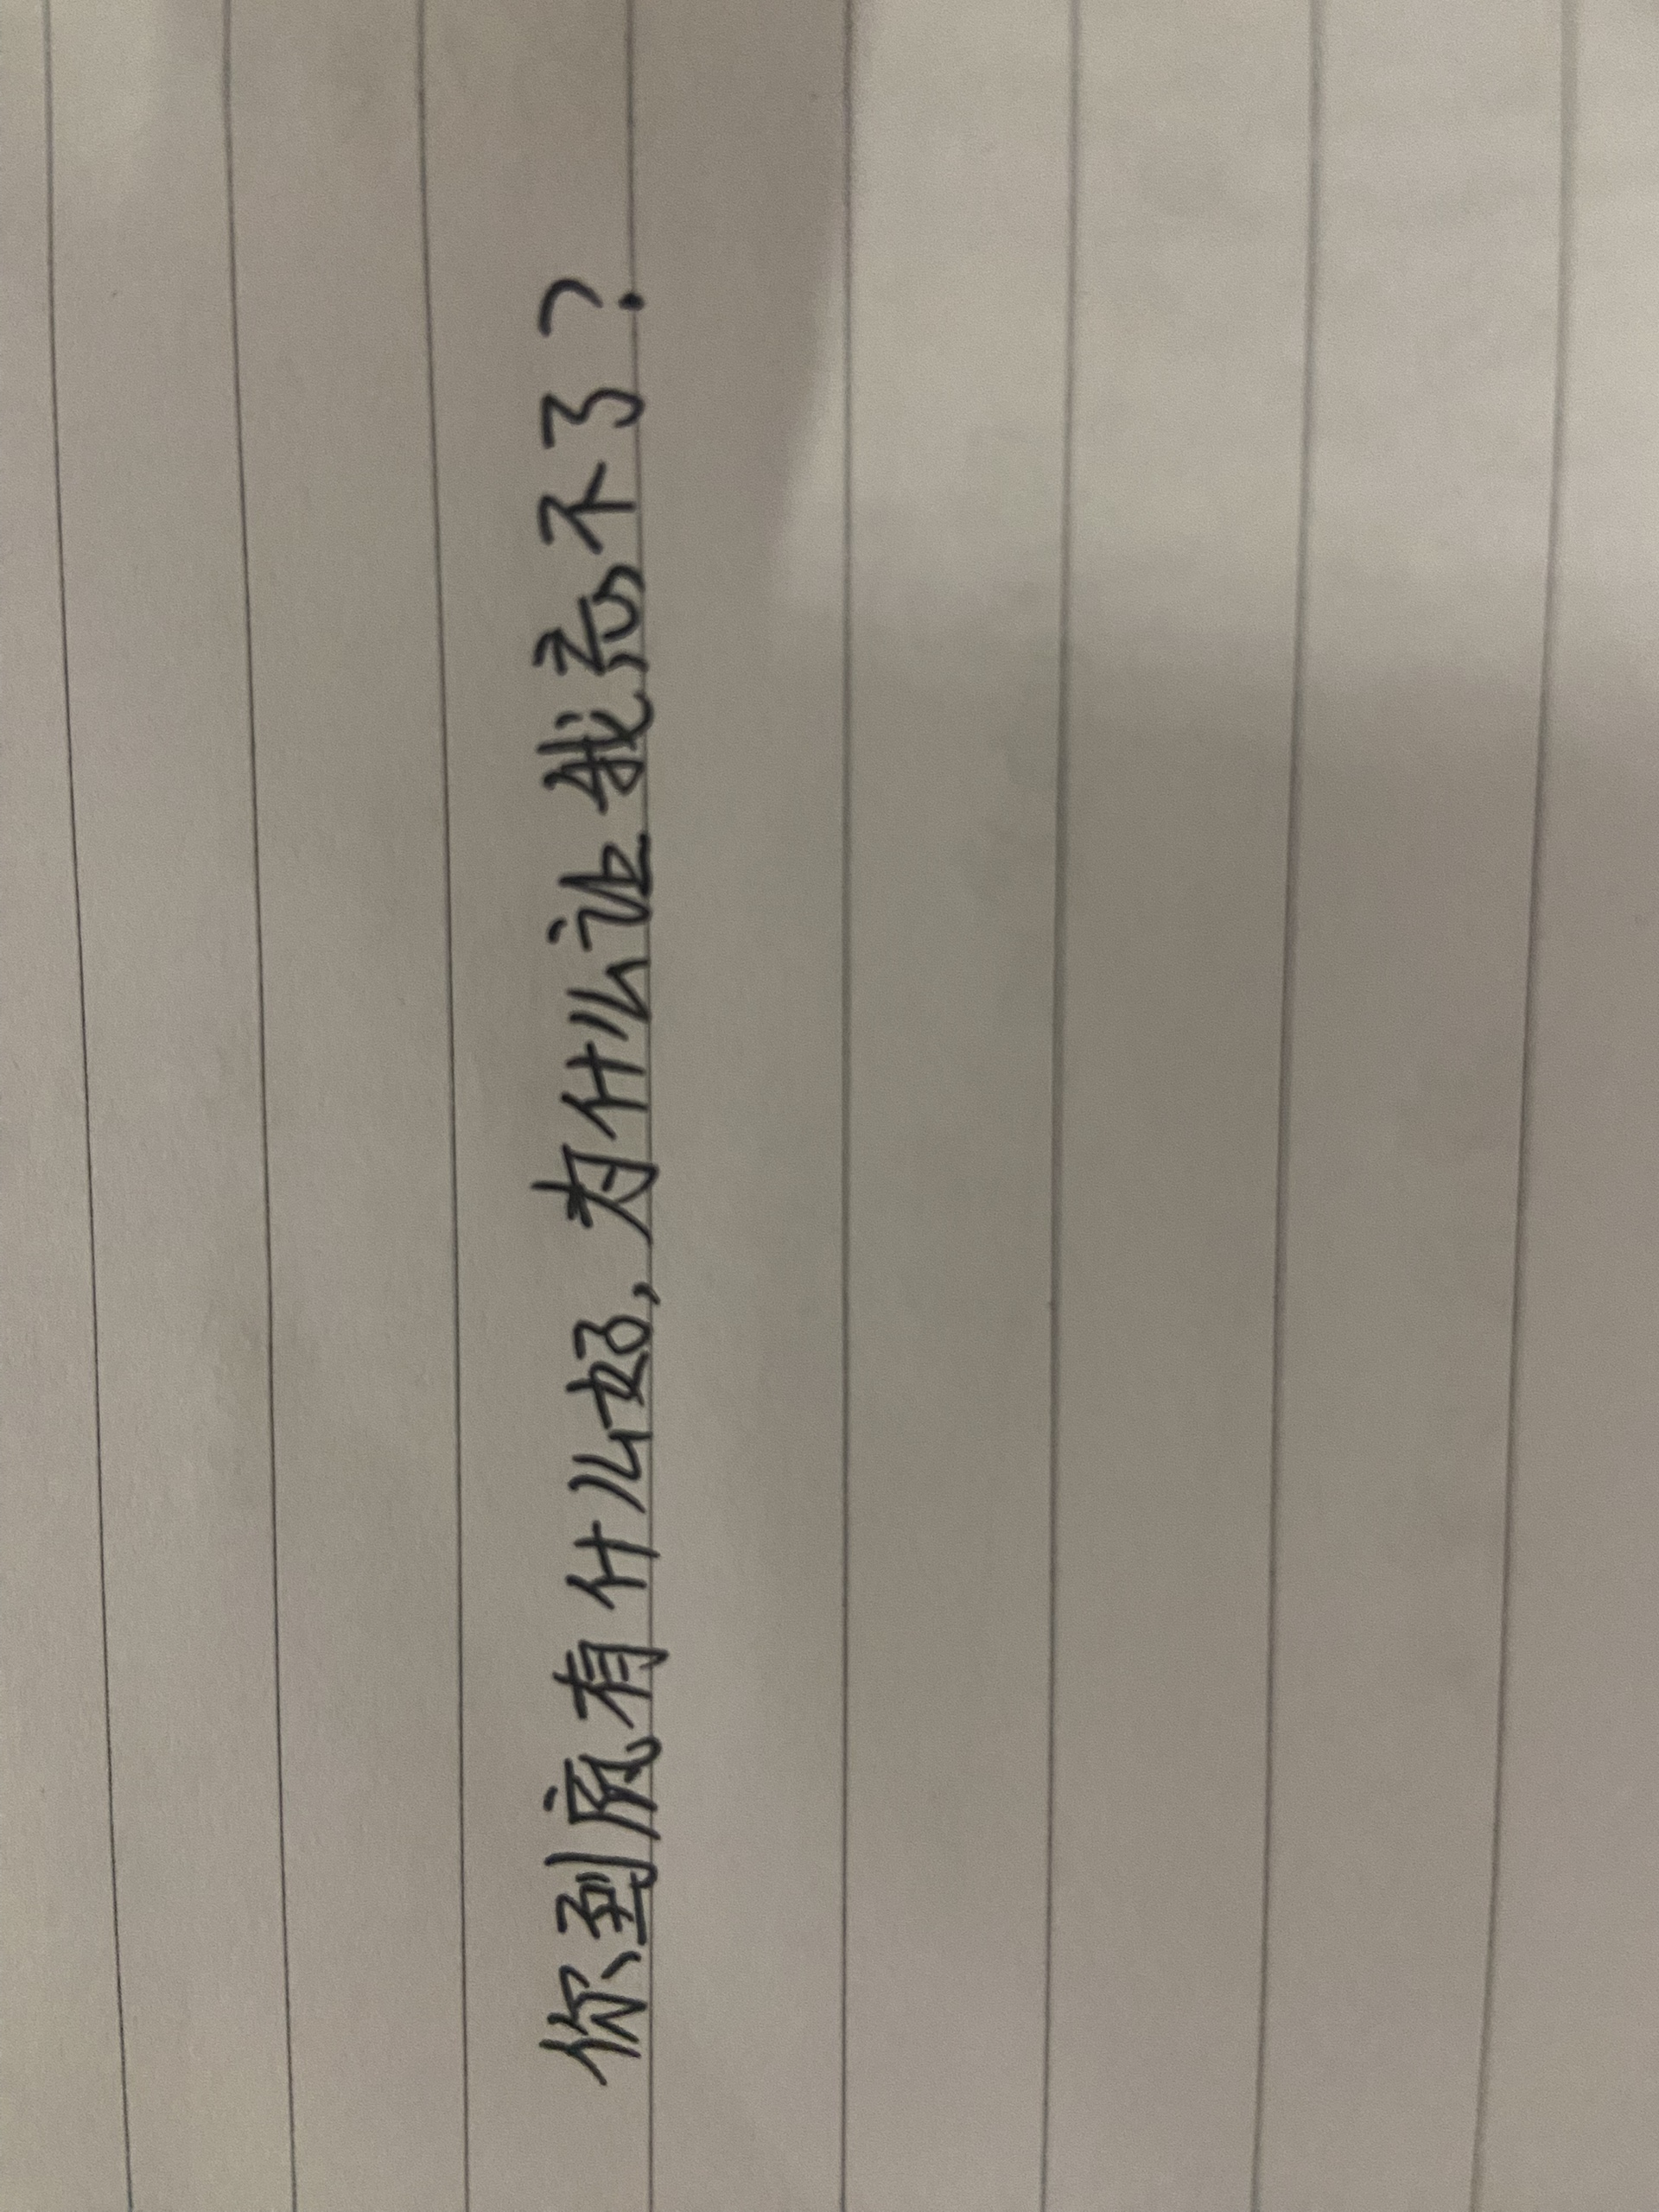 你到底有什么好，为什么让我忘不了？